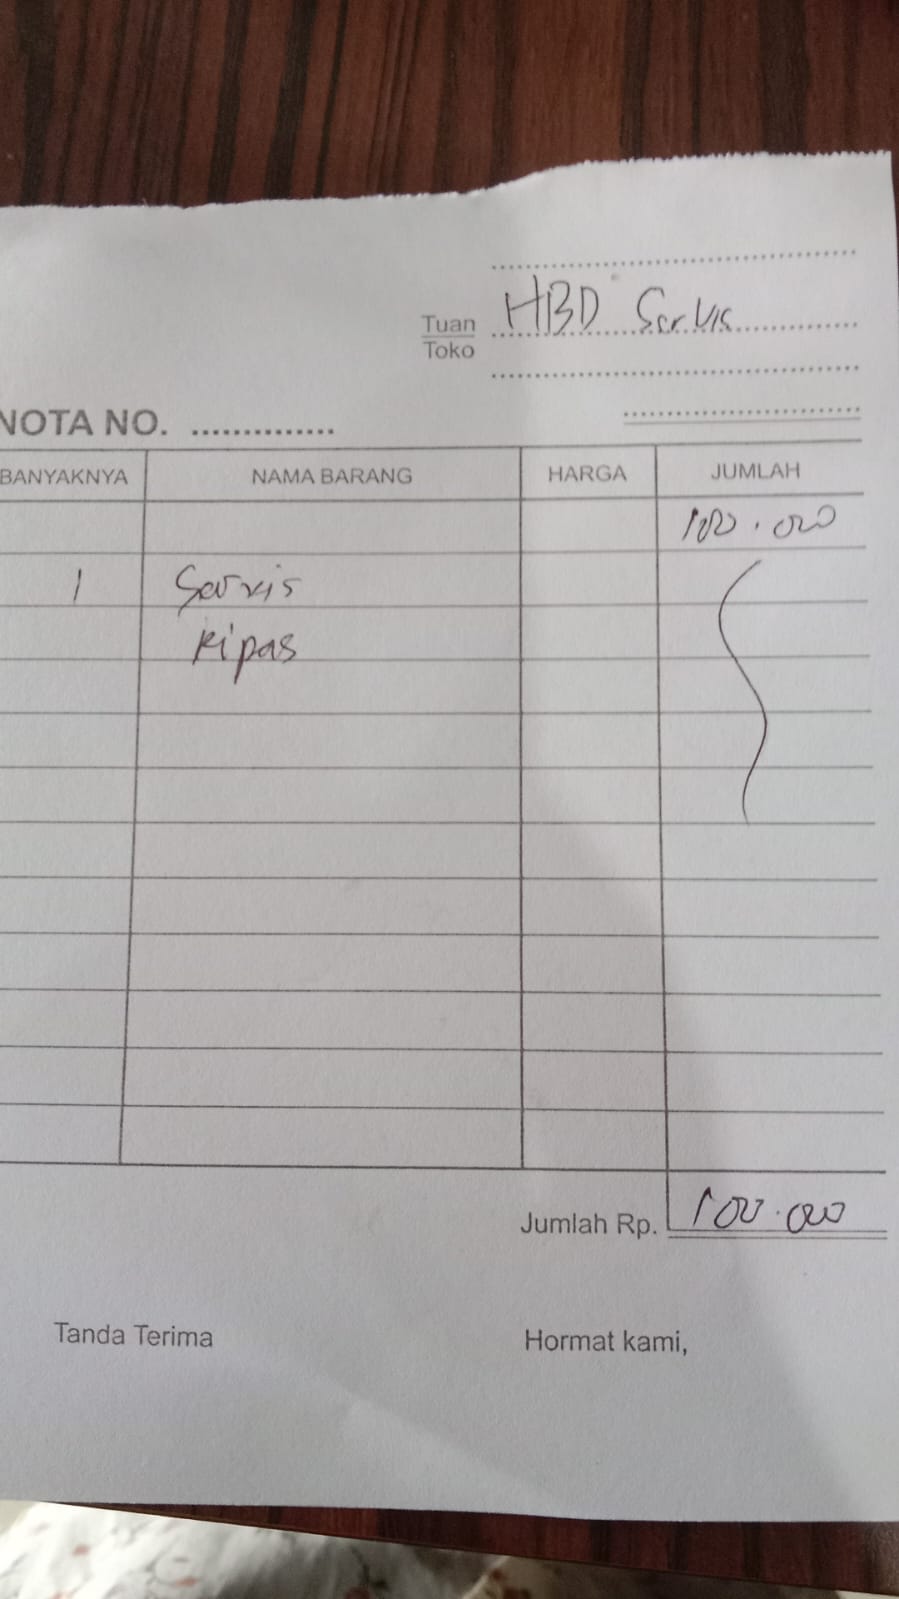 Tuan HBD Servis
Toko
NOTA NO. ..............
BANYAKNYA NAMA BARANG HARGA JUMLAH
100.000
1 Servis
kipas
Jumlah Rp. 100.000
Tanda Terima Hormat kami,